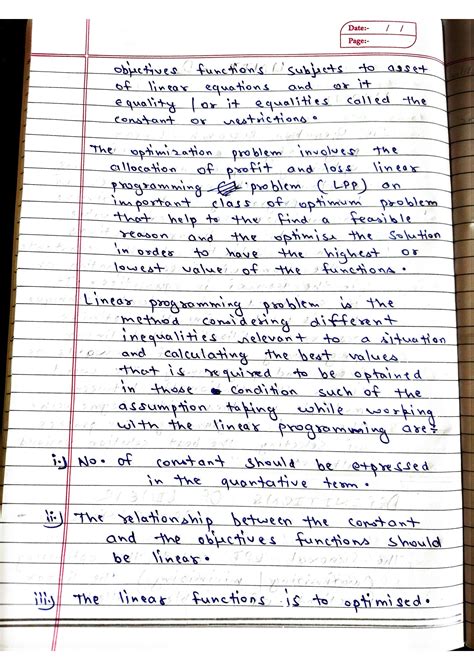 Date:- / /
Page:-
objectives functions subjects to asset
of linear equations and or it
equality / or it equalities called the
constant or restrictions.
The optimization problem involves the
allocation of profit and loss linear
programming problem (LPP) an
important class of optimum problem
that help to the find a feasible
reason and the optimise the solution
in order to have the highest or
lowest value of the functions.
Linear programming problem is the
method considering different
inequalities relevant to a situation
and calculating the best values
that is required to be optained
in those condition such of the
assumption taping while working
with the linear programming are:
i.) No. of constant should be expressed
in the quantative term.
ii.) The relationship between the constant
and the objectives functions should
be linear.
iii.) The linear functions is to optimised.